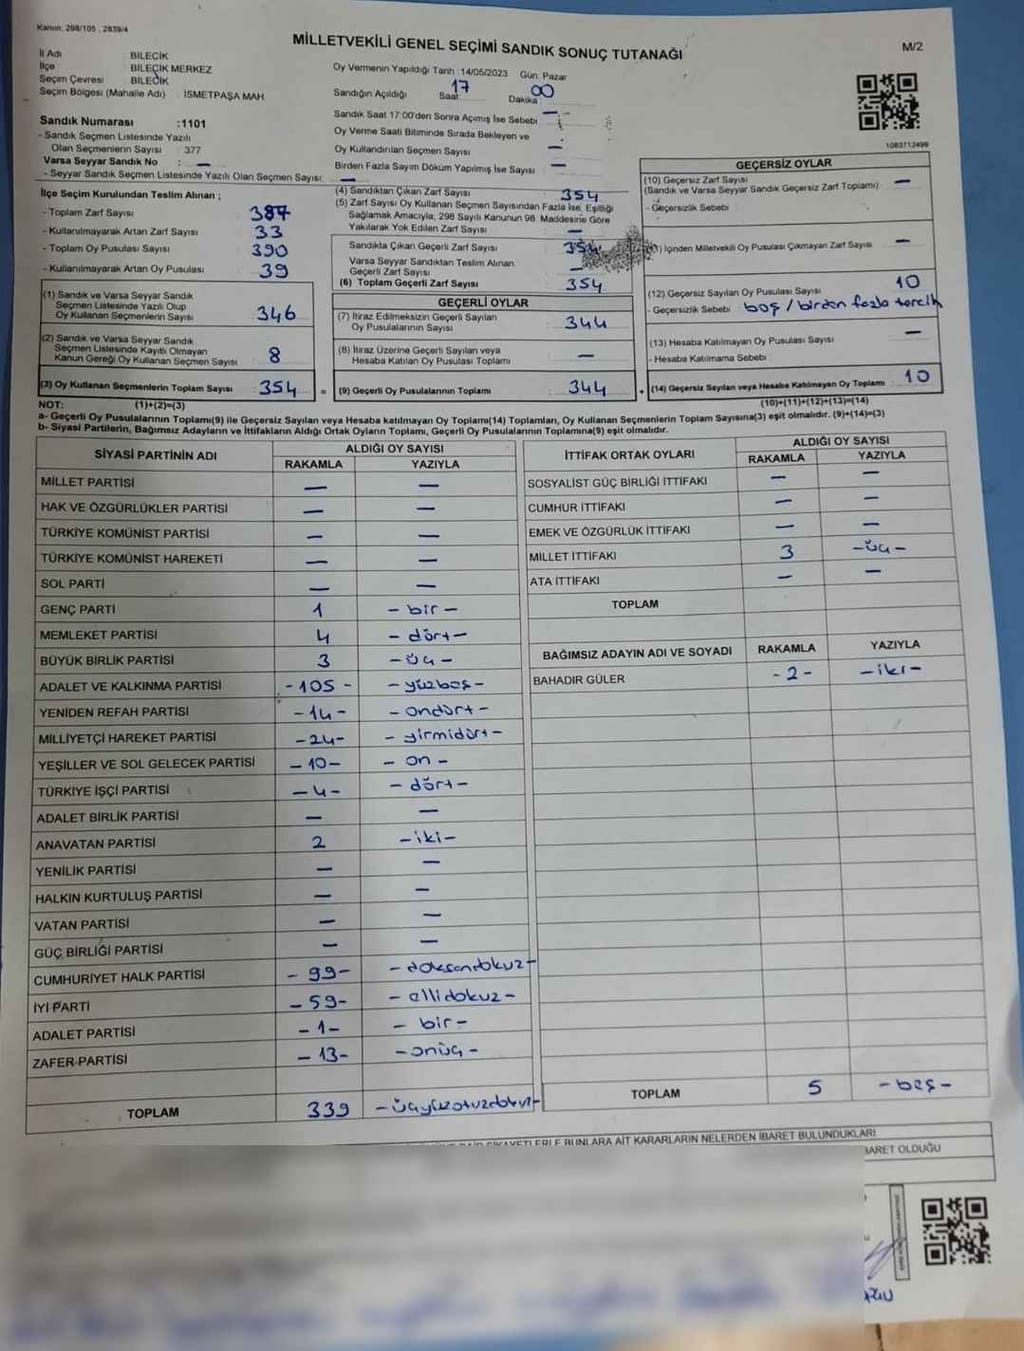 Kanun: 298/105 , 2839/4
MİLLETVEKİLİ GENEL SEÇİMİ SANDIK SONUÇ TUTANAĞI
M/2
İl Adı BİLECİK
İlçe BİLECİK MERKEZ
Seçim Çevresi BİLECİK
Seçim Bölgesi (Mahalle Adı) : İSMETPAŞA MAH.
Oy Vermenin Yapıldığı Tarih :14/05/2023 Gün: Pazar
Sandığın Açıldığı Saat 17 Dakika 00
Sandık Saat 17:00'den Sonra Açımış İse Sebebi —
Oy Verme Saati Bitiminde Sırada Bekleyen ve
Oy Kullandırılan Seçmen Sayısı —
Birden Fazla Sayım Döküm Yapılmış İse Sayısı —
Sandık Numarası :1101
- Sandık Seçmen Listesinde Yazılı
Olan Seçmenlerin Sayısı : 377
Varsa Seyyar Sandık No : —
- Seyyar Sandık Seçmen Listesinde Yazılı Olan Seçmen Sayısı: —
1083712499
İlçe Seçim Kurulundan Teslim Alınan ;
- Toplam Zarf Sayısı 387
- Kullanılmayarak Artan Zarf Sayısı 33
- Toplam Oy Pusulası Sayısı 390
- Kullanılmayarak Artan Oy Pusulası 39
(1) Sandık ve Varsa Seyyar Sandık
Seçmen Listesinde Yazılı Olup
Oy Kullanan Seçmenlerin Sayısı 346
(2) Sandık ve Varsa Seyyar Sandık
Seçmen Listesinde Kayıtlı Olmayan
Kanun Gereği Oy Kullanan Seçmen Sayısı 8
(3) Oy Kullanan Seçmenlerin Toplam Sayısı 354 =
(1)+(2)=(3)
(4) Sandıktan Çıkan Zarf Sayısı 354
(5) Zarf Sayısı Oy Kullanan Seçmen Sayısından Fazla İse, Eşitliği
Sağlamak Amacıyla, 298 Sayılı Kanunun 98. Maddesine Göre
Yakılarak Yok Edilen Zarf Sayısı —
Sandıkta Çıkan Geçerli Zarf Sayısı 354
Varsa Seyyar Sandıktan Teslim Alınan
Geçerli Zarf Sayısı —
(6) Toplam Geçerli Zarf Sayısı 354
GEÇERLİ OYLAR
(7) İtiraz Edilmeksizin Geçerli Sayılan
Oy Pusulalarının Sayısı 344
(8) İtiraz Üzerine Geçerli Sayılan veya
Hesaba Katılan Oy Pusulası Toplamı —
(9) Geçerli Oy Pusulalarının Toplamı 344 +
GEÇERSİZ OYLAR
(10) Geçersiz Zarf Sayısı
(Sandık ve Varsa Seyyar Sandık Geçersiz Zarf Toplamı) —
- Geçersizlik Sebebi
İçinden Milletvekili Oy Pusulası Çıkmayan Zarf Sayısı —
(12) Geçersiz Sayılan Oy Pusulası Sayısı 10
- Geçersizlik Sebebi boş / birden fazla tercih
(13) Hesaba Katılmayan Oy Pusulası Sayısı —
- Hesaba Katılmama Sebebi
(14) Geçersiz Sayılan veya Hesaba Katılmayan Oy Toplamı : 10
(10)+(11)+(12)+(13)=(14)
NOT:
a- Geçerli Oy Pusulalarının Toplamı(9) ile Geçersiz Sayılan veya Hesaba katılmayan Oy Toplamı(14) Toplamları, Oy Kullanan Seçmenlerin Toplam Sayısına(3) eşit olmalıdır. (9)+(14)=(3)
b- Siyasi Partilerin, Bağımsız Adayların ve İttifakların Aldığı Ortak Oyların Toplamı, Geçerli Oy Pusulalarının Toplamına(9) eşit olmalıdır.
SİYASİ PARTİNİN ADI ALDIĞI OY SAYISI
RAKAMLA YAZIYLA
MİLLET PARTİSİ — —
HAK VE ÖZGÜRLÜKLER PARTİSİ — —
TÜRKİYE KOMÜNİST PARTİSİ — —
TÜRKİYE KOMÜNİST HAREKETİ — —
SOL PARTİ — —
GENÇ PARTİ 1 - bir -
MEMLEKET PARTİSİ 4 - dört -
BÜYÜK BİRLİK PARTİSİ 3 - üç -
ADALET VE KALKINMA PARTİSİ - 105 - - yüzbeş -
YENİDEN REFAH PARTİSİ - 14 - - ondört -
MİLLİYETÇİ HAREKET PARTİSİ - 24 - - yirmidört -
YEŞİLLER VE SOL GELECEK PARTİSİ - 10 - - on -
TÜRKİYE İŞÇİ PARTİSİ - 4 - - dört -
ADALET BİRLİK PARTİSİ — —
ANAVATAN PARTİSİ 2 - iki -
YENİLİK PARTİSİ — —
HALKIN KURTULUŞ PARTİSİ — —
VATAN PARTİSİ — —
GÜÇ BİRLİĞİ PARTİSİ — —
CUMHURİYET HALK PARTİSİ - 99 - - doksandokuz -
İYİ PARTİ - 59 - - ellidokuz -
ADALET PARTİSİ - 1 - - bir -
ZAFER PARTİSİ - 13 - - onüç -
TOPLAM 339 - üçyüzotuzdokuz -
İTTİFAK ORTAK OYLARI ALDIĞI OY SAYISI
RAKAMLA YAZIYLA
SOSYALİST GÜÇ BİRLİĞİ İTTİFAKI — —
CUMHUR İTTİFAKI — —
EMEK VE ÖZGÜRLÜK İTTİFAKI — —
MİLLET İTTİFAKI 3 - üç -
ATA İTTİFAKI — —
TOPLAM
BAĞIMSIZ ADAYIN ADI VE SOYADI RAKAMLA YAZIYLA
BAHADIR GÜLER - 2 - - iki -
TOPLAM 5 - beş -
BUNLARA AİT KARARLARIN NELERDEN İBARET BULUNDUKLARI
İBARET OLDUĞU